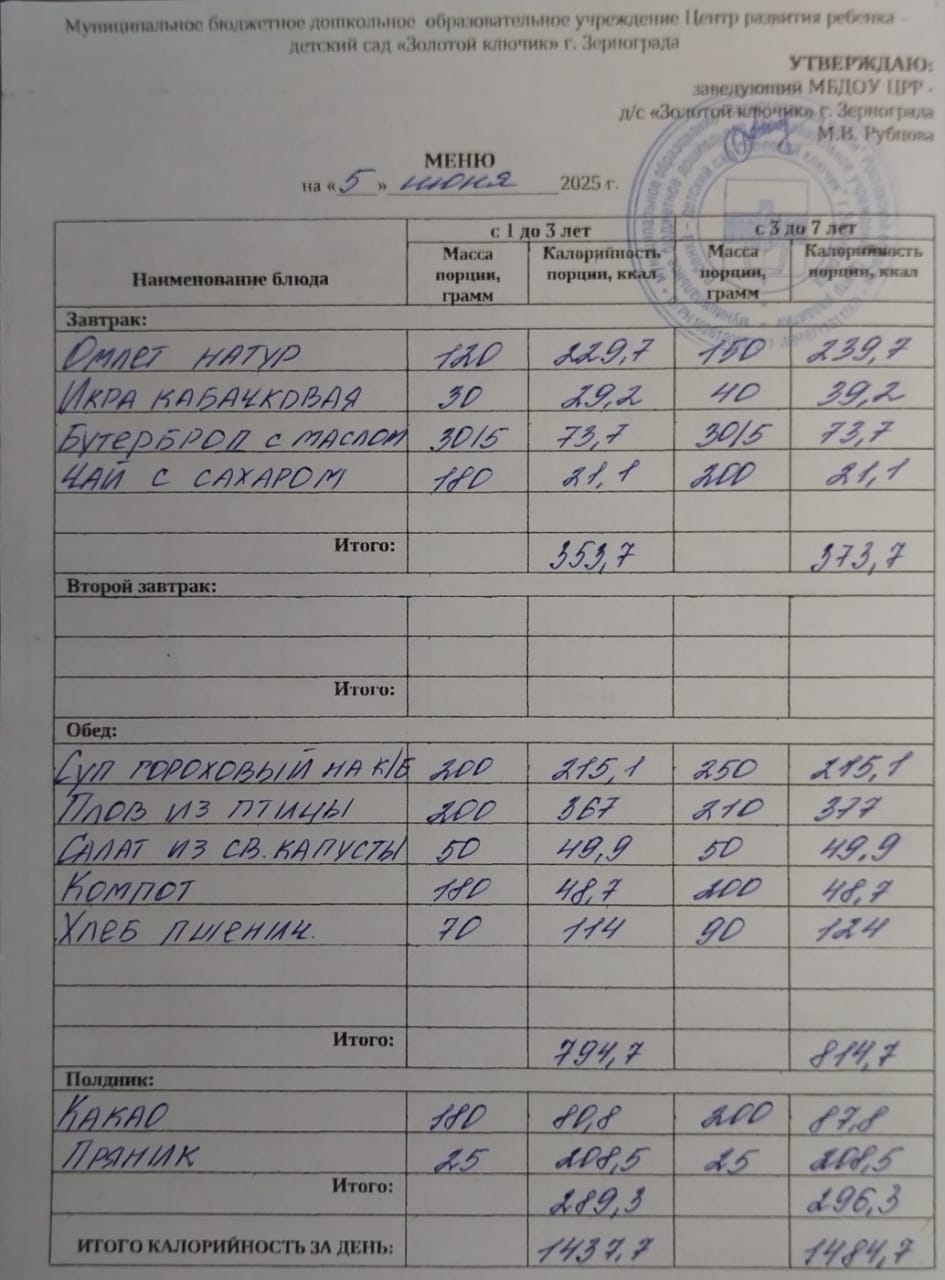 Муниципальное бюджетное дошкольное образовательное учреждение Центр развития ребенка –
детский сад «Золотой ключик» г. Зернограда
УТВЕРЖДАЮ:
заведующий МБДОУ ЦРР -
д/с «Золотой ключик» г. Зернограда
М.В. Рубцова
МЕНЮ
на « 5 » июня 2025 г.
Наименование блюда
с 1 до 3 лет с 3 до 7 лет
Масса порции, грамм Калорийность порции, ккал Масса порции, грамм Калорийность порции, ккал
Завтрак:
Омлет натур 120 229,7 150 239,7
Икра кабачковая 30 29,2 40 39,2
Бутерброд с маслом 30/5 73,7 30/5 73,7
Чай с сахаром 180 21,1 200 21,1
Итого: 353,7 373,7
Второй завтрак:
Итого:
Обед:
Суп гороховый на к/б 200 215,1 250 215,1
Плов из птицы 200 367 210 377
Салат из св. капусты 50 49,9 50 49,9
Компот 180 48,7 200 48,7
Хлеб пшенич. 70 114 90 124
Итого: 794,7 814,7
Полдник:
Какао 180 80,8 200 87,8
Пряник 25 208,5 25 208,5
Итого: 289,3 296,3
ИТОГО КАЛОРИЙНОСТЬ ЗА ДЕНЬ: 1437,7 1484,7